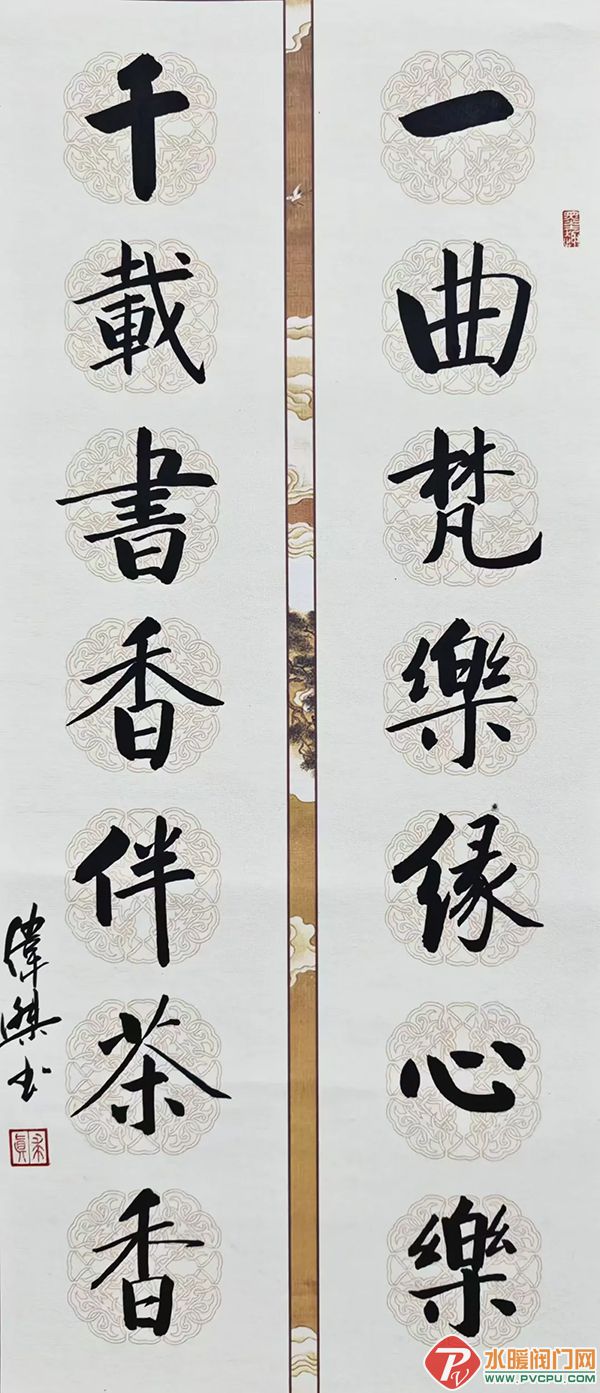 一曲梵樂緣心樂
千載書香伴茶香
水暖阀门网
WWW.PVCPU.COM